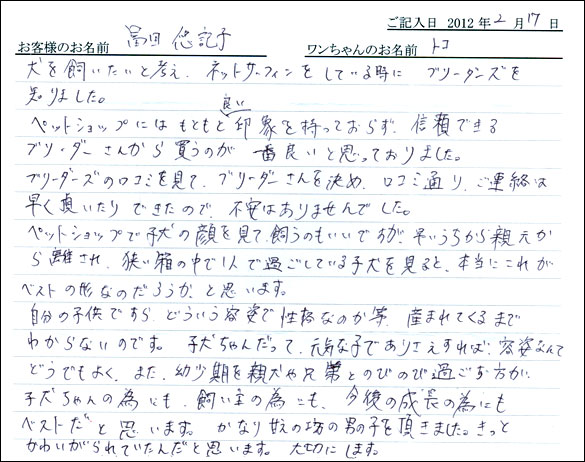 ご記入日 2012年2月17日
お客様のお名前 冨田 悠記子 ワンちゃんのお名前 トコ
犬を飼いたいと考え、ネットサーフィンをしている時に ブリーダーズを
知りました。
良い
ペットショップにはもともと印象を持っておらず、信頼できる
ブリーダーさんから買うのが一番良いと思っておりました。
ブリーダーズの口コミを見て、ブリーダーさんを決め、口コミ通り、ご連絡は
早く頂いたりできたので、不安はありませんでした。
ペットショップで子犬の顔を見て、飼うのもいいですが、早いうちから親元か
ら離され、狭い箱の中で1人で過ごしている子犬を見ると、本当にこれが
ベストの形なのだろうか、と思います。
自分の子供ですら、どういう容姿で性格なのか等、産まれてくるまで
わからないのです。子犬ちゃんだって、元気な子でありさえすれば、容姿なんて
どうでもよく、また、幼少期を親犬や兄弟とのびのび過ごす方が、
子犬ちゃんの為にも、飼い主の為にも、今後の成長の為にも
ベストだと思います。かなり甘えの坊の男の子を頂きました。きっと
かわいがられていたんだと思います。大切にします。